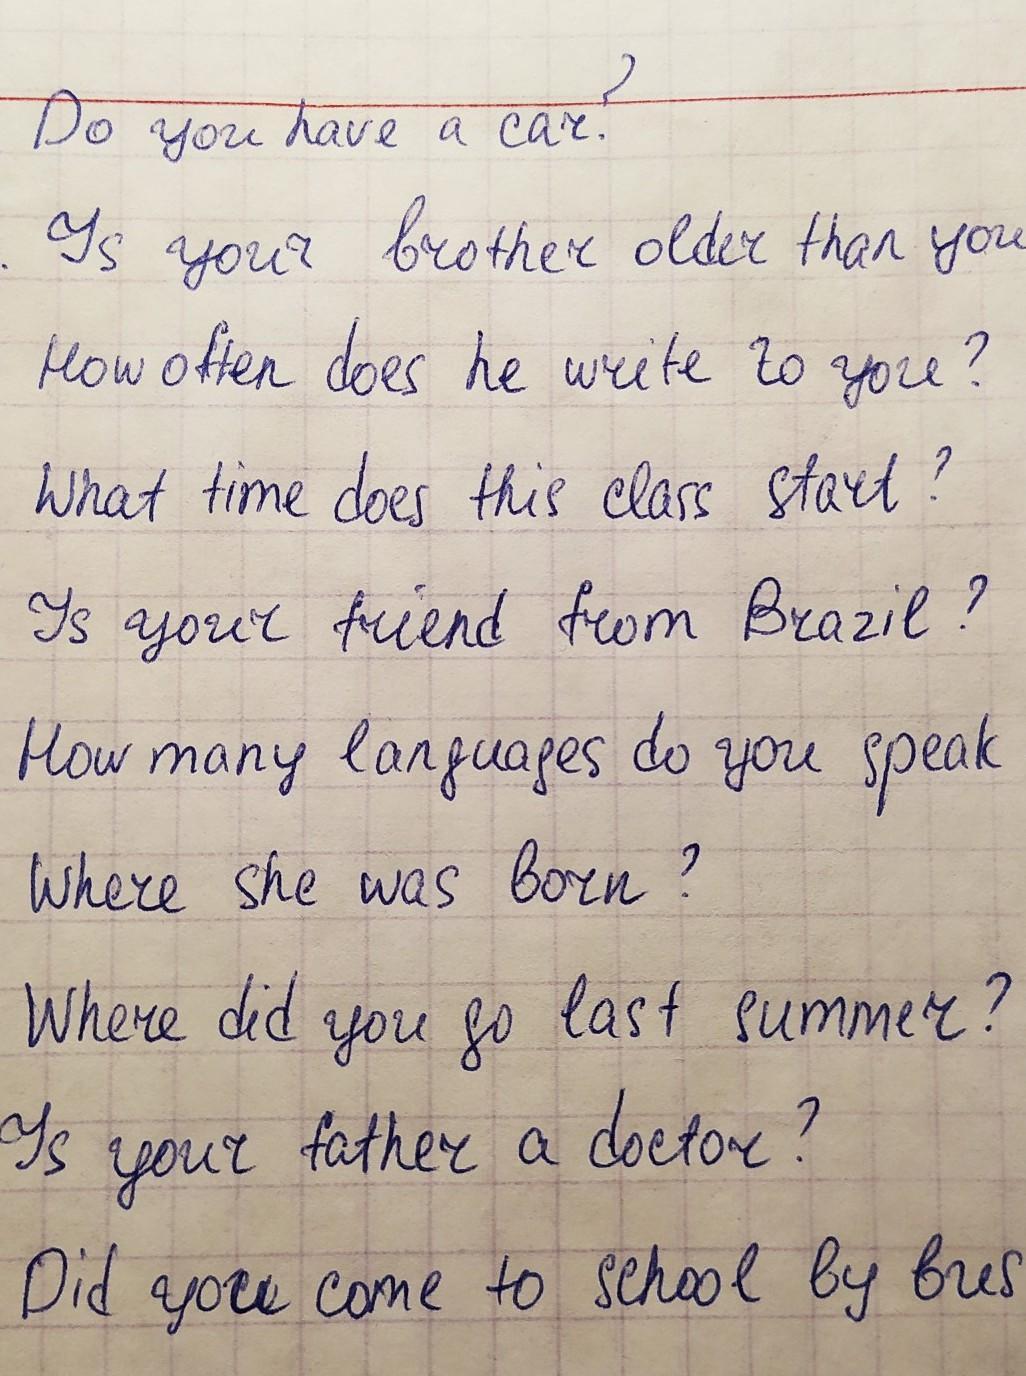 Do you have a car?
. Is your brother older than you
How often does he write to you?
What time does this class start?
Is your friend from Brazil?
How many languages do you speak
Where she was born?
Where did you go last summer?
Is your father a doctor?
Did you come to school by bus